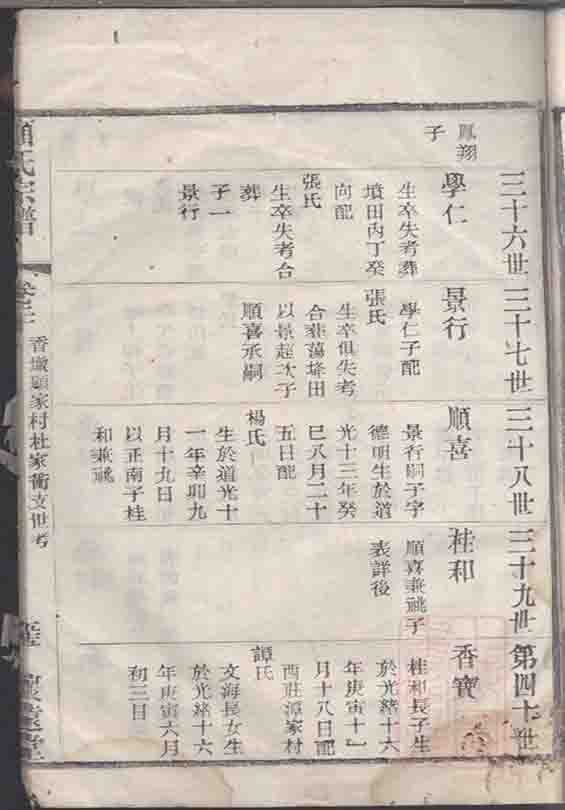 三十六世
三十七世
三十八世
三十九世
第四十世
鳳翔
子
學仁
生卒失考葬
墳田丙丁癸
向配
張氏
生卒失考合
葬
子一
景行
景行
學仁子配
張氏
生卒俱失考
合葬蕩埄田
以景超次子
順喜承嗣
順喜
景行嗣子字
德明生於道
光十三年癸
巳八月二十
五日配
楊氏
生於道光十
一年辛卯九
月十九日
以正南子桂
和兼祧
桂和
順喜兼祧子
表詳後
香寶
桂和長子生
於光緒十六
年庚寅十一
月十八日配
西莊潭家村
譚氏
文海長女生
於光緒十六
年庚寅六月
初三日
顧氏宗譜
香墩顧家村杜家衖支世考